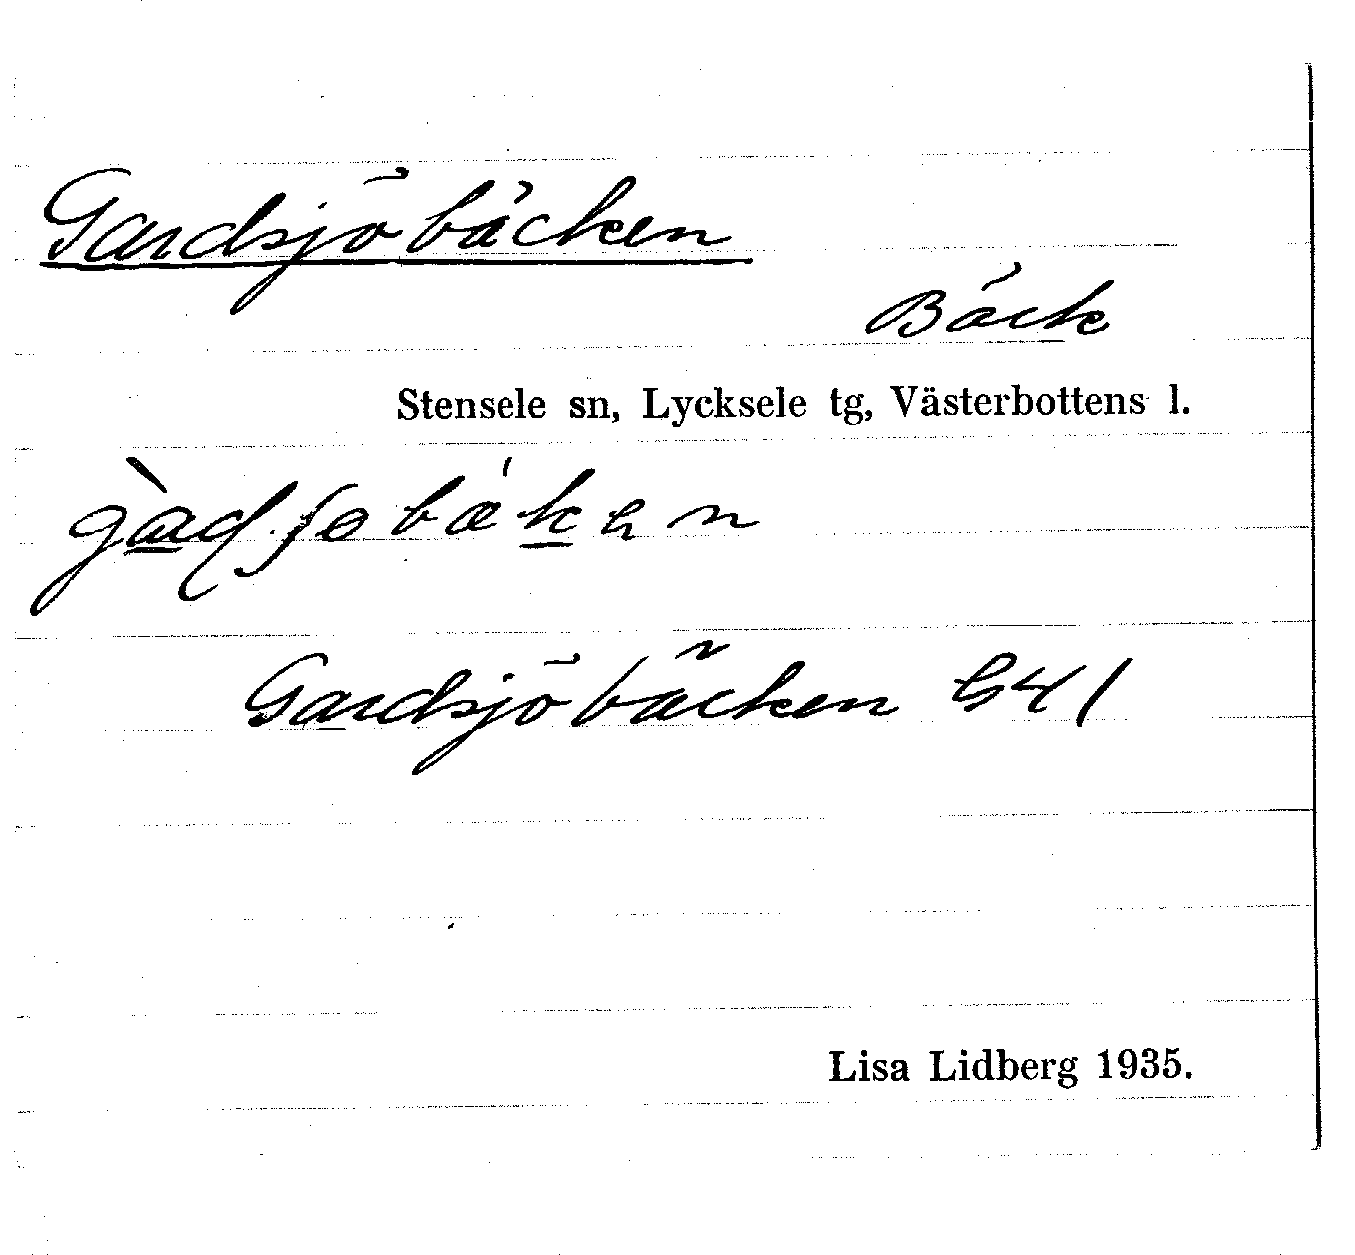 Gardsjöbäcken
Bäck
Stensele sn, Lycksele tg, Västerbottens l.
Gardsjöbäcken G41
Lisa Lidberg 1935.